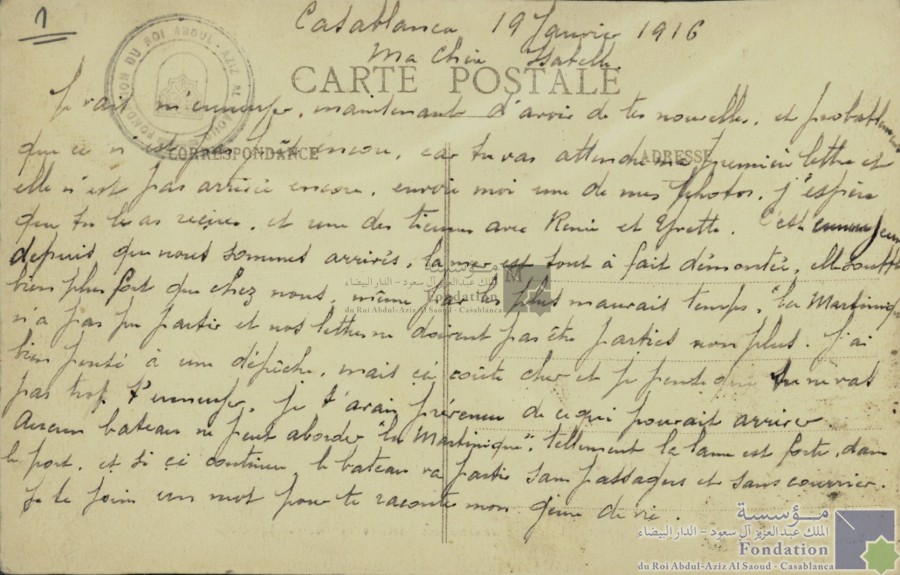 1
Casablanca 19 Janvier 1916
Ma Chère Isabelle
CARTE POSTALE
FONDATION DU ROI ABDUL-AZIZ AL SAOUD
Je vait m'ennuyer, maintenant d'avoir de tes nouvelles, et
que ce n'est pas encore, car tu vas attendre ma premiere lettre et
CORRESPONDANCE
ADRESSE
elle n'est pas arrivée encore, envoie moi une de mes photos, j'espère
que tu les as reçues, et une des tiennes avec Renée et Yvette. C'est
depuis que nous sommes arrivés, la mer est tout à fait démontée, elle
bien plus fort que chez nous, même par les plus mauvais temps, "La Martinique
n'a pas pu partir et nos lettres ne doivent pas être parties non plus. J'ai
bien pensé à une dépêche, mais ça coûte cher et je pense que tu ne vas
pas trop t'ennuyer, je t'avais prévenu de ce qui pouvait arriver.
Aucun bateau ne peut aborder "la Martinique", tellement la lame est forte, dans
le port, et si ça continue, le bateau va partir sans passagers et sans courrier.
Je te joins un mot pour te raconter mon genre de vie.
مؤسسة
الملك عبدالعزيز آل سعود - الدار البيضاء
Fondation
du Roi Abdul-Aziz Al Saoud - Casablanca
مؤسسة
الملك عبدالعزيز آل سعود - الدار البيضاء
Fondation
du Roi Abdul-Aziz Al Saoud - Casablanca